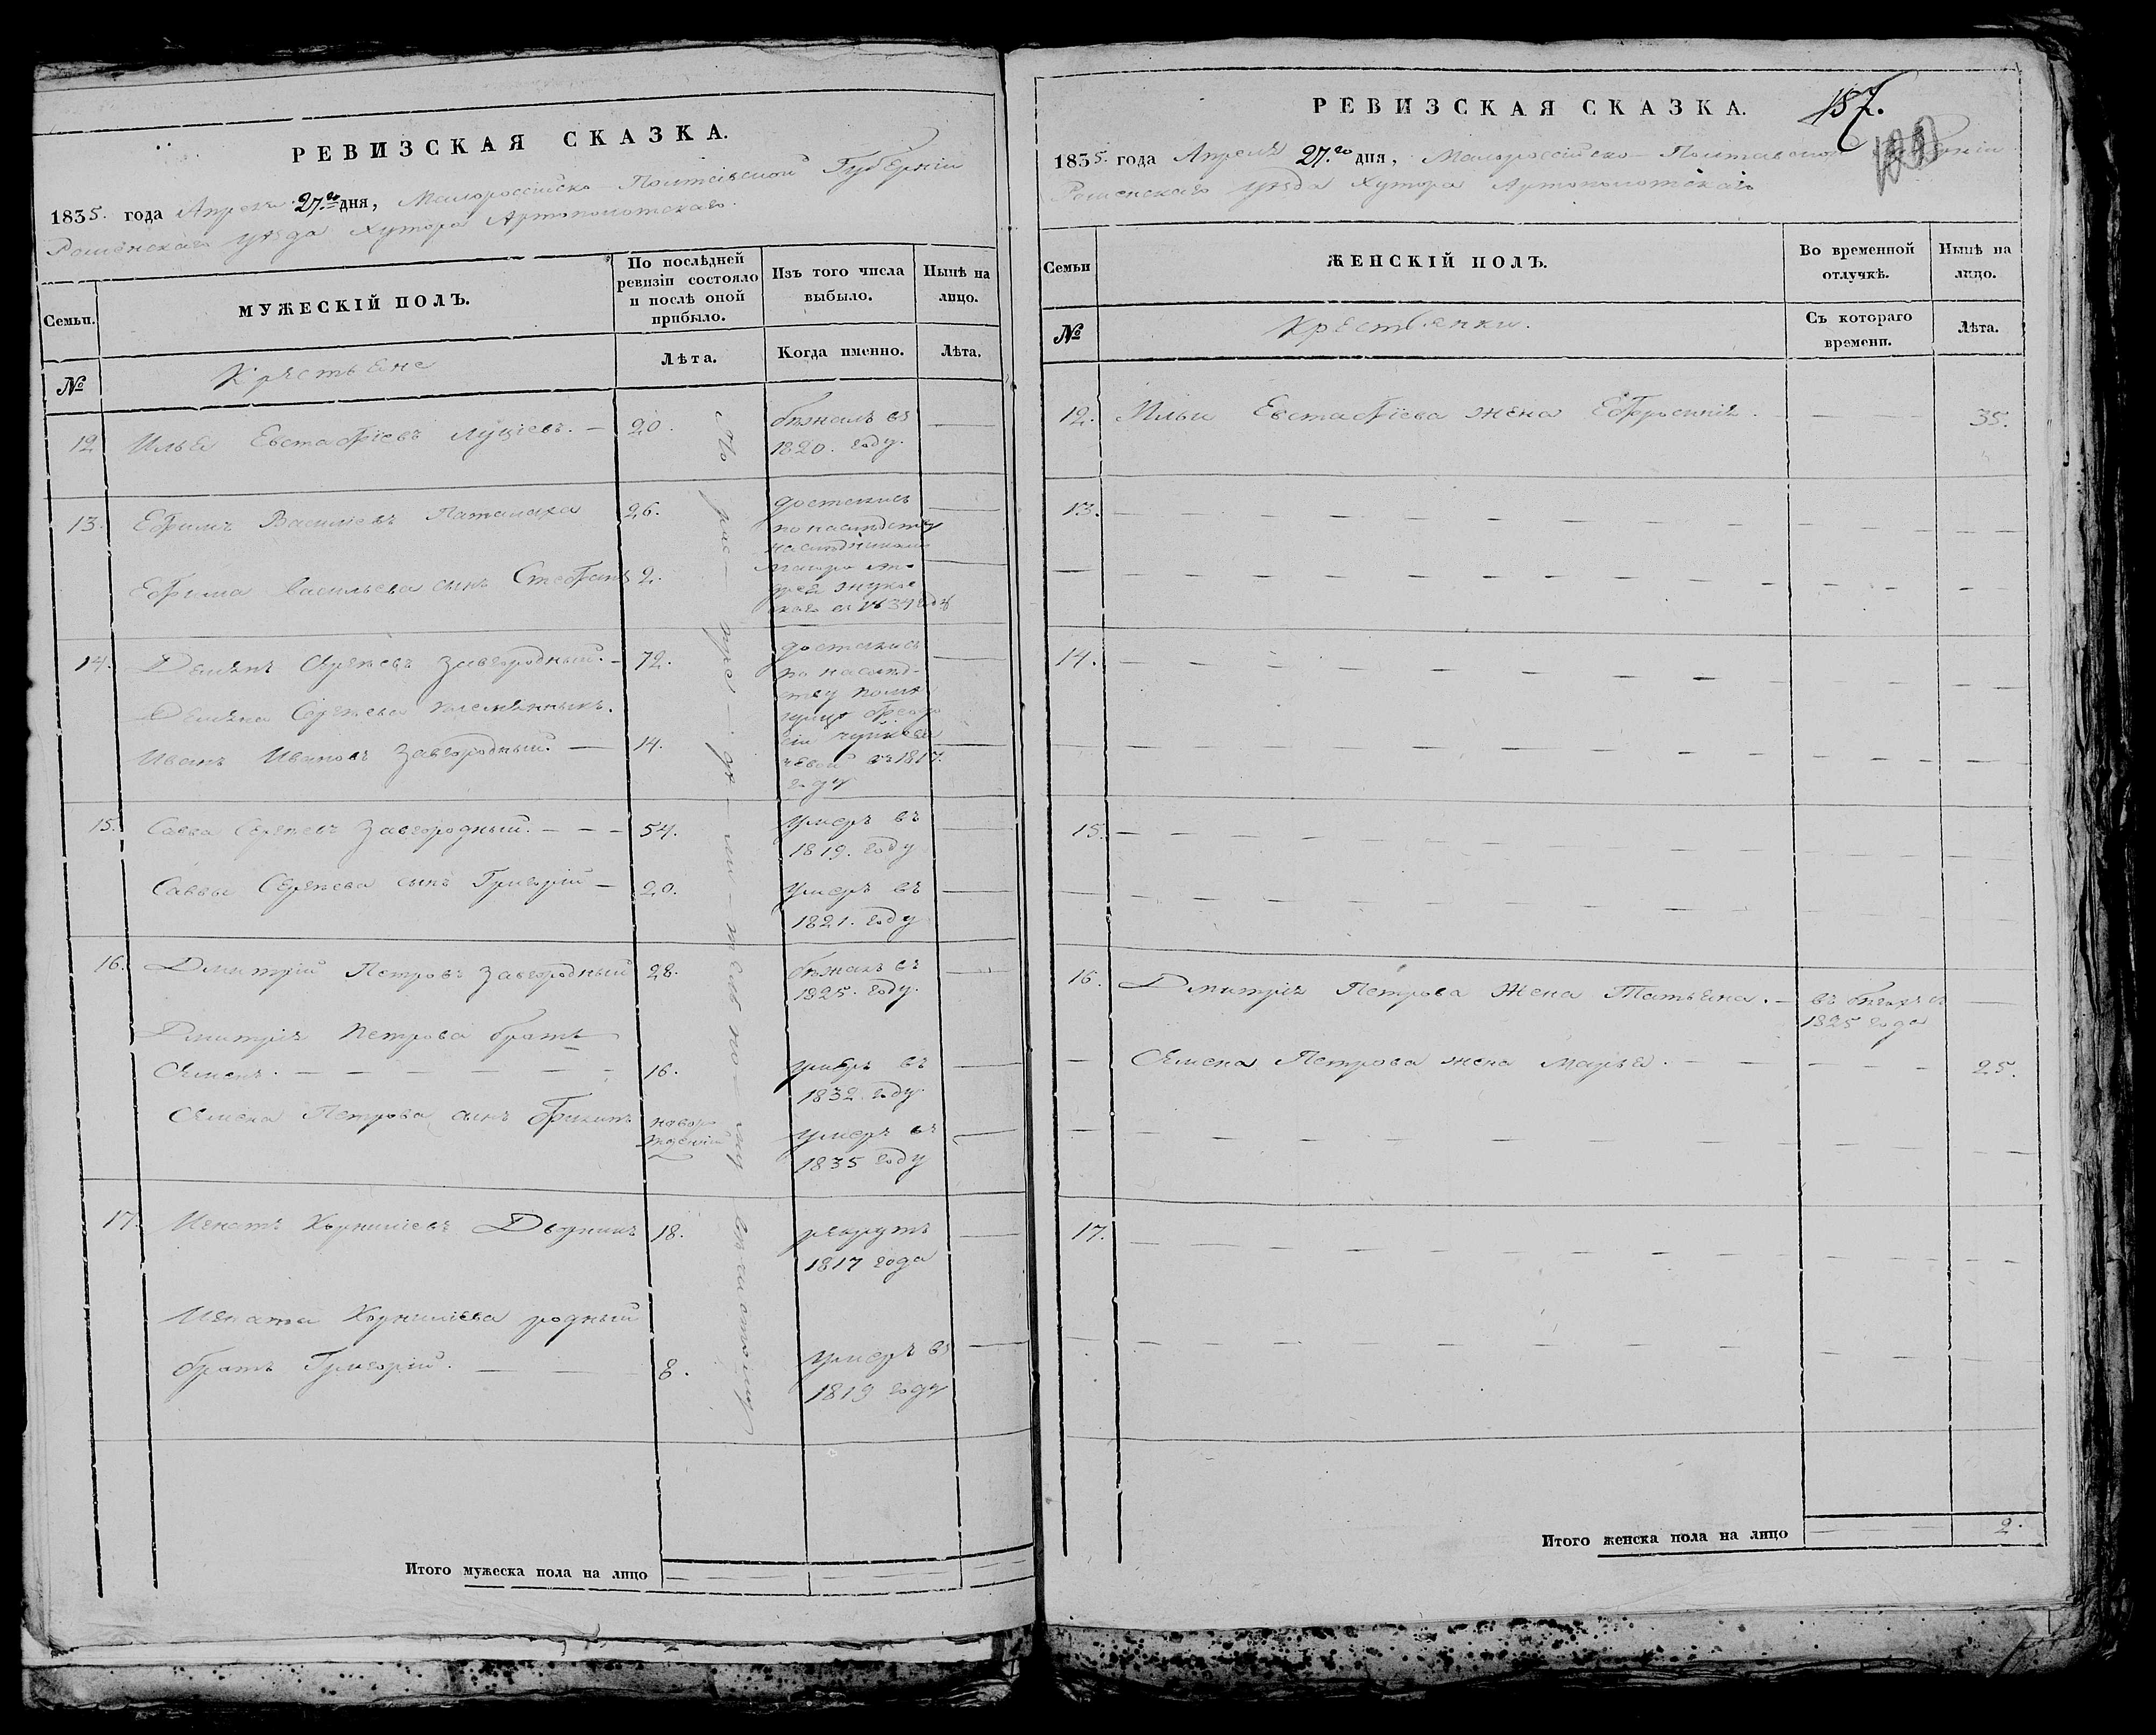 РЕВИЗСКАЯ СКАЗКА.
1835. года Апреля 27.го дня, Малороссійско-Полтавской Губерніи
Роменскаго уѣзда Хутора Артополотскаго.
Семьи.
МУЖЕСКІЙ ПОЛЪ.
По послѣдней ревизіи состояло и послѣ оной прибыло.
Изъ того числа выбыло.
Нынѣ на лицо.
№
Крестьяне
Лѣта.
Когда именно.
Лѣта.
12 Илья Евстафіевъ — 20. бѣжалъ въ
1820. году.
13. Ефимъ Василіевъ 26. достались
по наслѣдству
наслѣдникамъ
Ефима Васильева сынъ Стефанъ 2.
въ 1834 году
14. Демянъ Сергѣевъ Завгородный. — 72. достались
по наслѣд-
ству помѣ
Демяна Сергѣева племянникъ.
Иванъ Ивановъ Завгородный. — 14.
въ 1817.
году
15. Савва Сергѣевъ Завгородный. — — — 54. умеръ въ
1819. году
Саввы Сергѣева сынъ Григорій — 20. умеръ въ
1821. году
16. Дмитрій Петровъ Завгородный 28. бѣжалъ въ
1825. году.
Дмитрія Петрова братъ
Семенъ. — — — — — — 16. умеръ въ
1832. году
Семена Петрова сынъ новорожденный умеръ въ
1835 году
17. Игнатъ Корниліевъ Дворникъ 18. рекрутъ
1817 года
Игната Корниліева родный
братъ Григорій. — — — 8. умеръ въ
1819 году
Итого мужеска пола на лицо — — —
РЕВИЗСКАЯ СКАЗКА.
187.
1835. года Апреля 27.го дня, Малороссійско-Полтавской Губерніи
Роменскаго уѣзда Хутора Артополотскаго
Семьи
ЖЕНСКІЙ ПОЛЪ.
Во временной отлучкѣ.
Нынѣ на лицо.
№
Крестьянки.
Съ котораго времени.
Лѣта.
12. Ильи Евстафіева жена Ефросинія. — — 35.
13.
14.
15.
16. Дмитрія Петрова жена Татьяна. — въ бѣгахъ съ
1825 года
— Семена Петрова жена Марья. — — — 25.
17.
Итого женска пола на лицо — — 2.